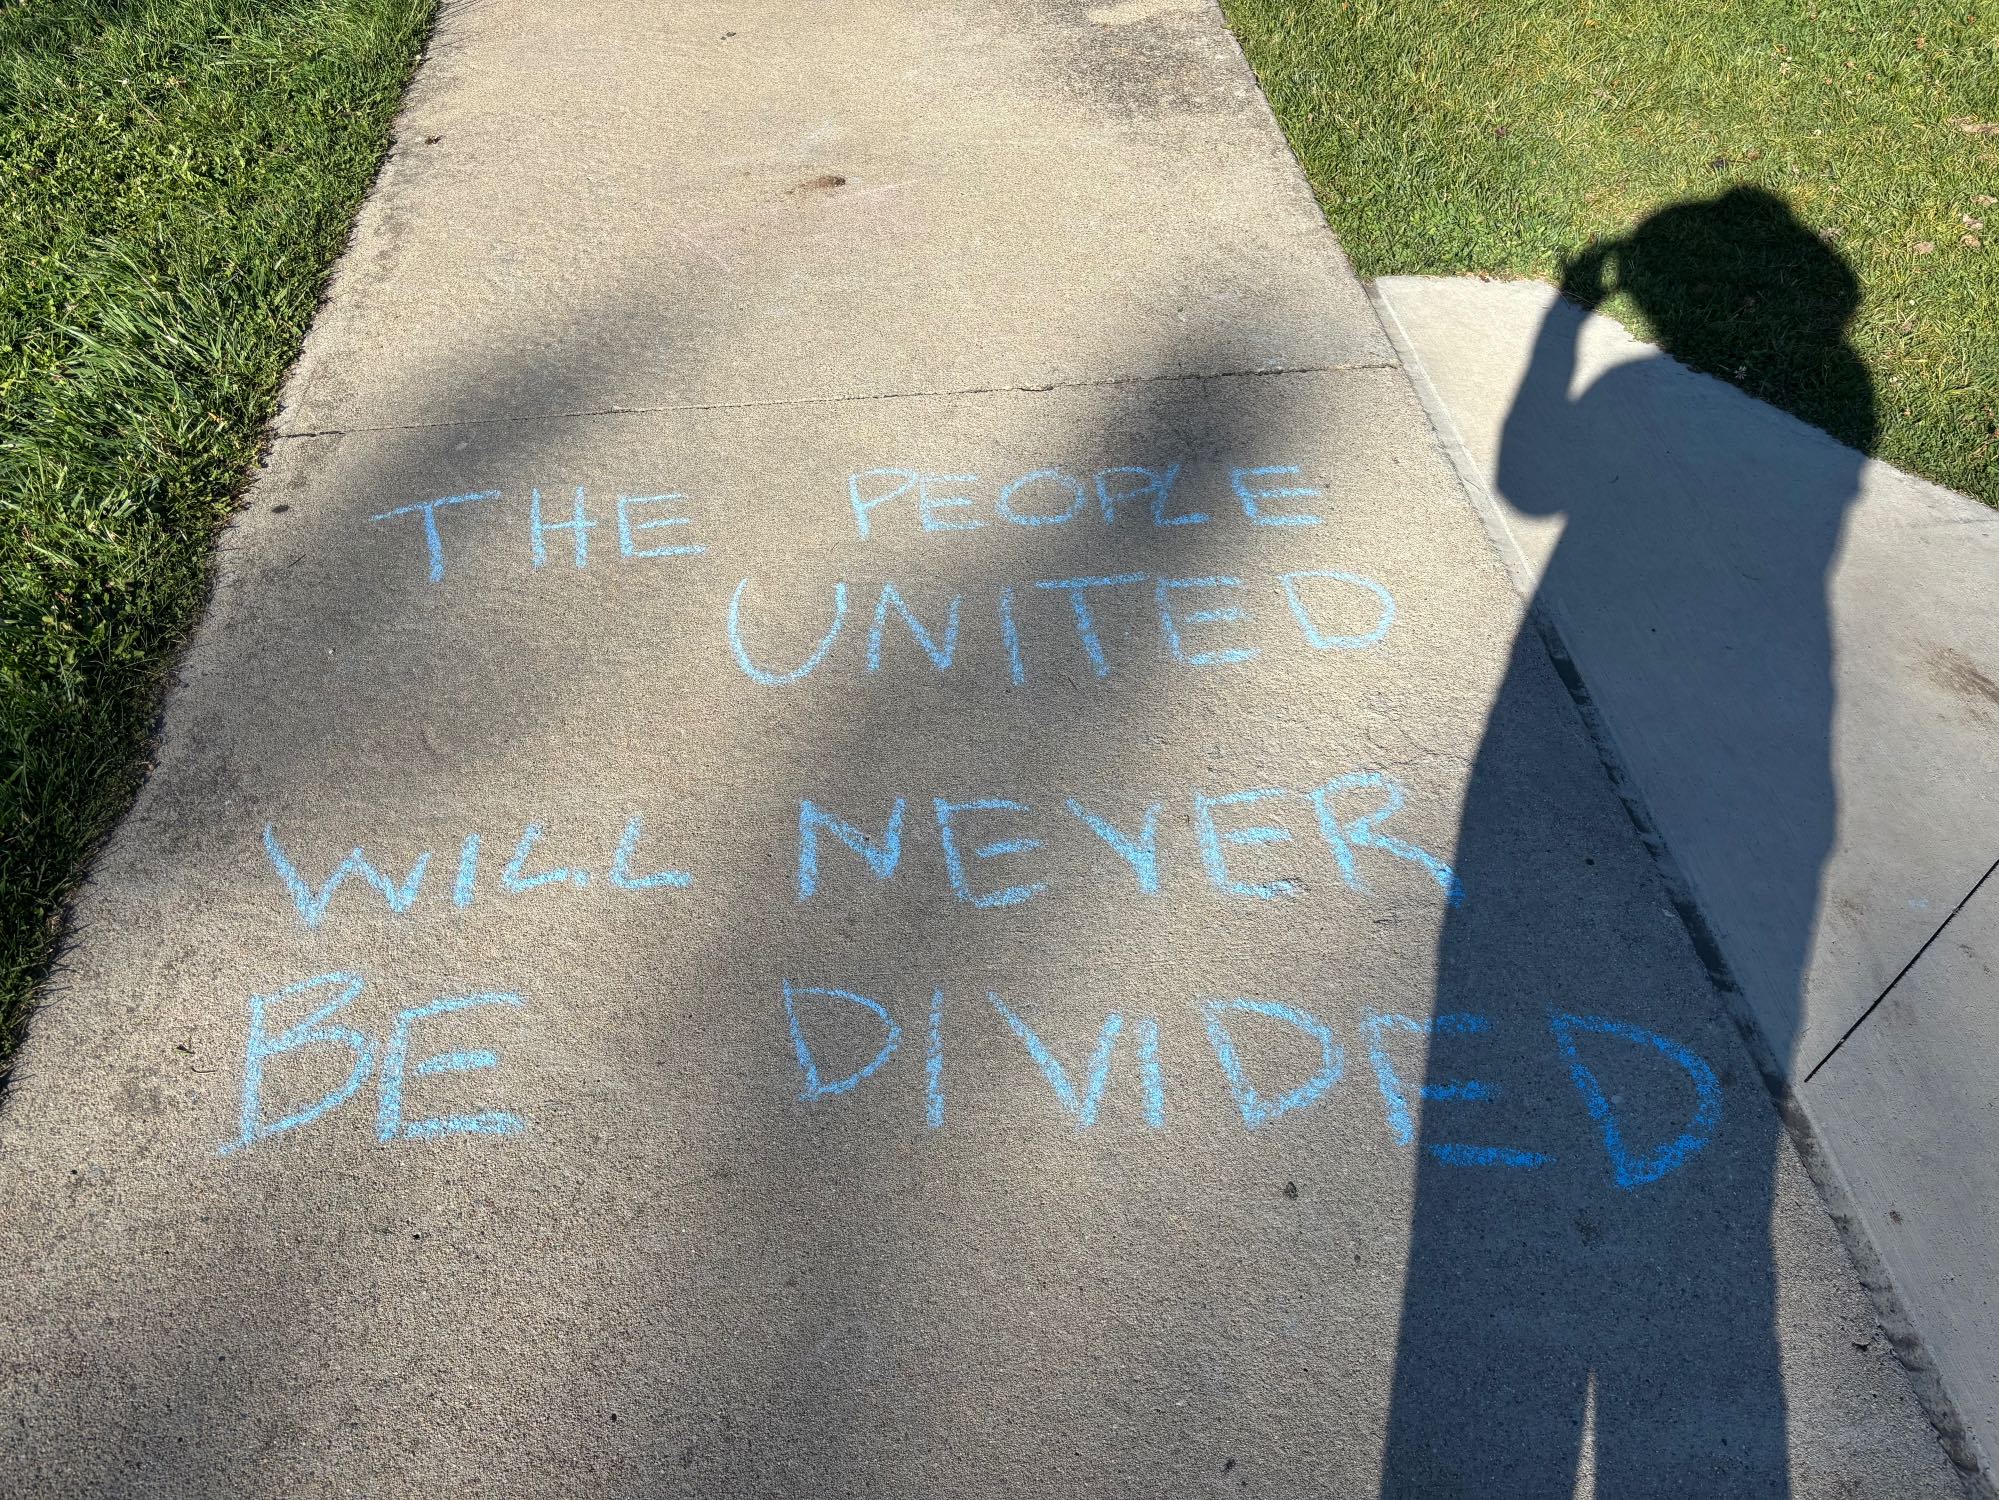 THE PEOPLE
UNITED
WILL NEVER
BE DIVIDED